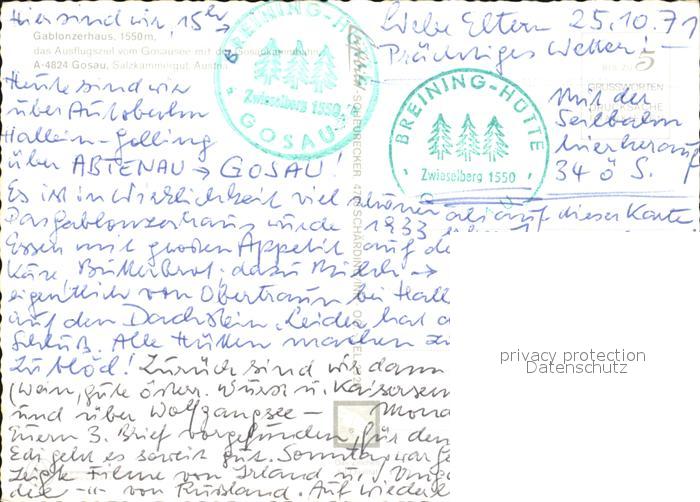 Hier sind wir, 15 h
Gablonzerhaus, 1550m,
das Ausflugsziel vom Gosausee mit der Gosaukammbahn
A-4824 Gosau, Salzkammergut, Austria
Liebe Eltern 25.10.71
Prächtiges Wetter! —
BREINING-HÜTTE
Zwieselberg 1550
GOSAU
BREINING-HÜTTE
Zwieselberg 1550
BIS ZU 5
GRUSSWORTEN
DRUCKSACHE
Mit der
Seilbahn
hierherauf
34 ö S.
Heute sind wir
über Autobahn
Hallein-Golling
über ABTENAU → GOSAU!
Es ist in Wirklichkeit viel schöner als auf dieser Karte,
Das Gablonzerhaus wurde 1933
Essen mit großen Appetit auf de
Käse Butterbrot; dazu Milch →
eigentlich von Obertraun bei Hall
auf den Dachstein. Leider hat d
Schluß. Alle Hütten machen zu
Zu blöd! Zurück sind wir dann
(Wein, gute österr. Wurst u. Kaisersem
und über Wolfgangsee — Mond
Euern 3. Brief vorgefunden, für den
Edi geht es soweit gut. Sonntag war ge
zeigte Filme von Irland u. Unga
die -"- von Rußland. Auf Wiederse
privacy protection
Datenschutz